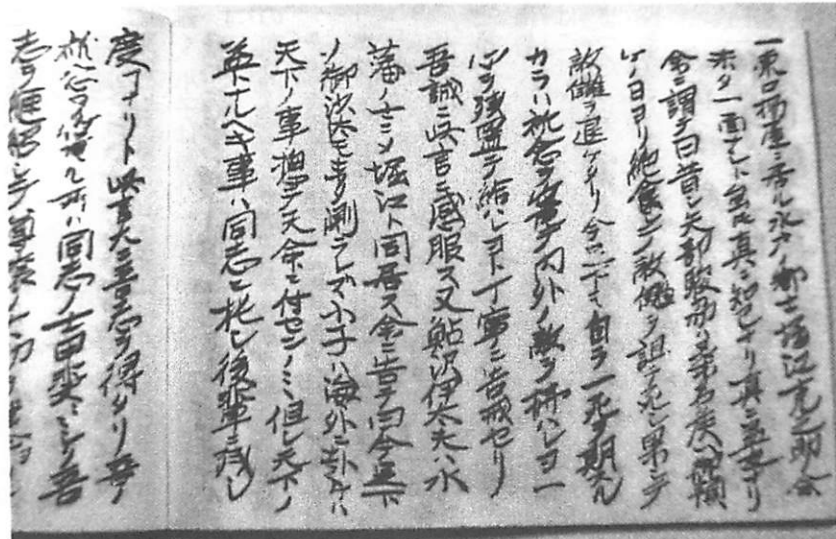 一東口揚屋ニ居ル水戸ノ郷士堀江克之助余
未タ一面ナシト雖𪜈真ニ知己ナリ真ニ益友ナリ
余ニ謂テ曰昔シ矢部駿州ハ桑名侯ヘ御預
ケノ日ヨリ絶食シテ敵讎ヲ詛テ死シ果シテ
敵讎ヲ退ケタリ今足下モ自ラ一死ヲ期スル
カラハ祈念ヲ篭テ内外ノ敵ヲ払ハレヨ一
心ヲ残置テ給ハレヨト丁寧ニ告戒セリ
吾誠ニ此言ニ感服ス又鮎沢伊太夫ハ水
藩ノ士ニ〆堀江ト同居ス余ニ告テ曰今足下
ノ御沙汰モ未タ測ラレズ小子ハ海外ニ赴ケハ
天下ノ事総テ天命ニ付センノミ但シ天下ノ
益トナルヘキ事ハ同志ニ托シ後輩ニ残シ
度コナリト此言大ニ吾志ヲ得タリ吾ノ
祈念ヲ篭ル所ハ同志ノ士甲斐々々シク吾
志ヲ継紹シテ尊攘ノ大功ヲ